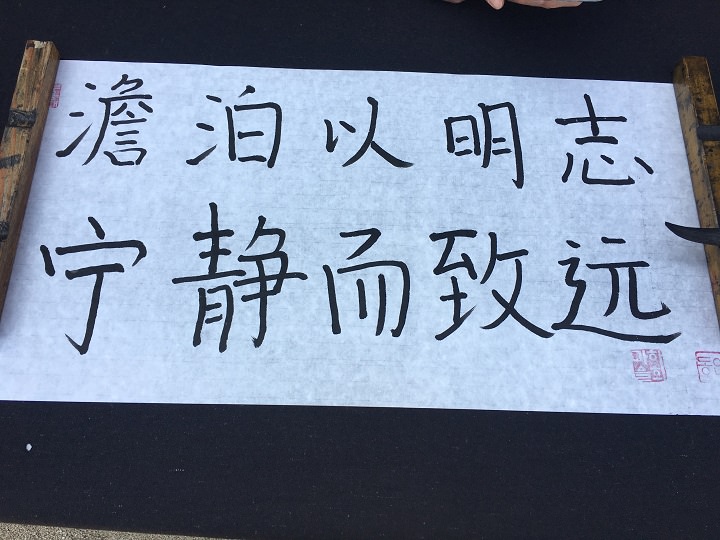 澹泊以明志
宁静而致远